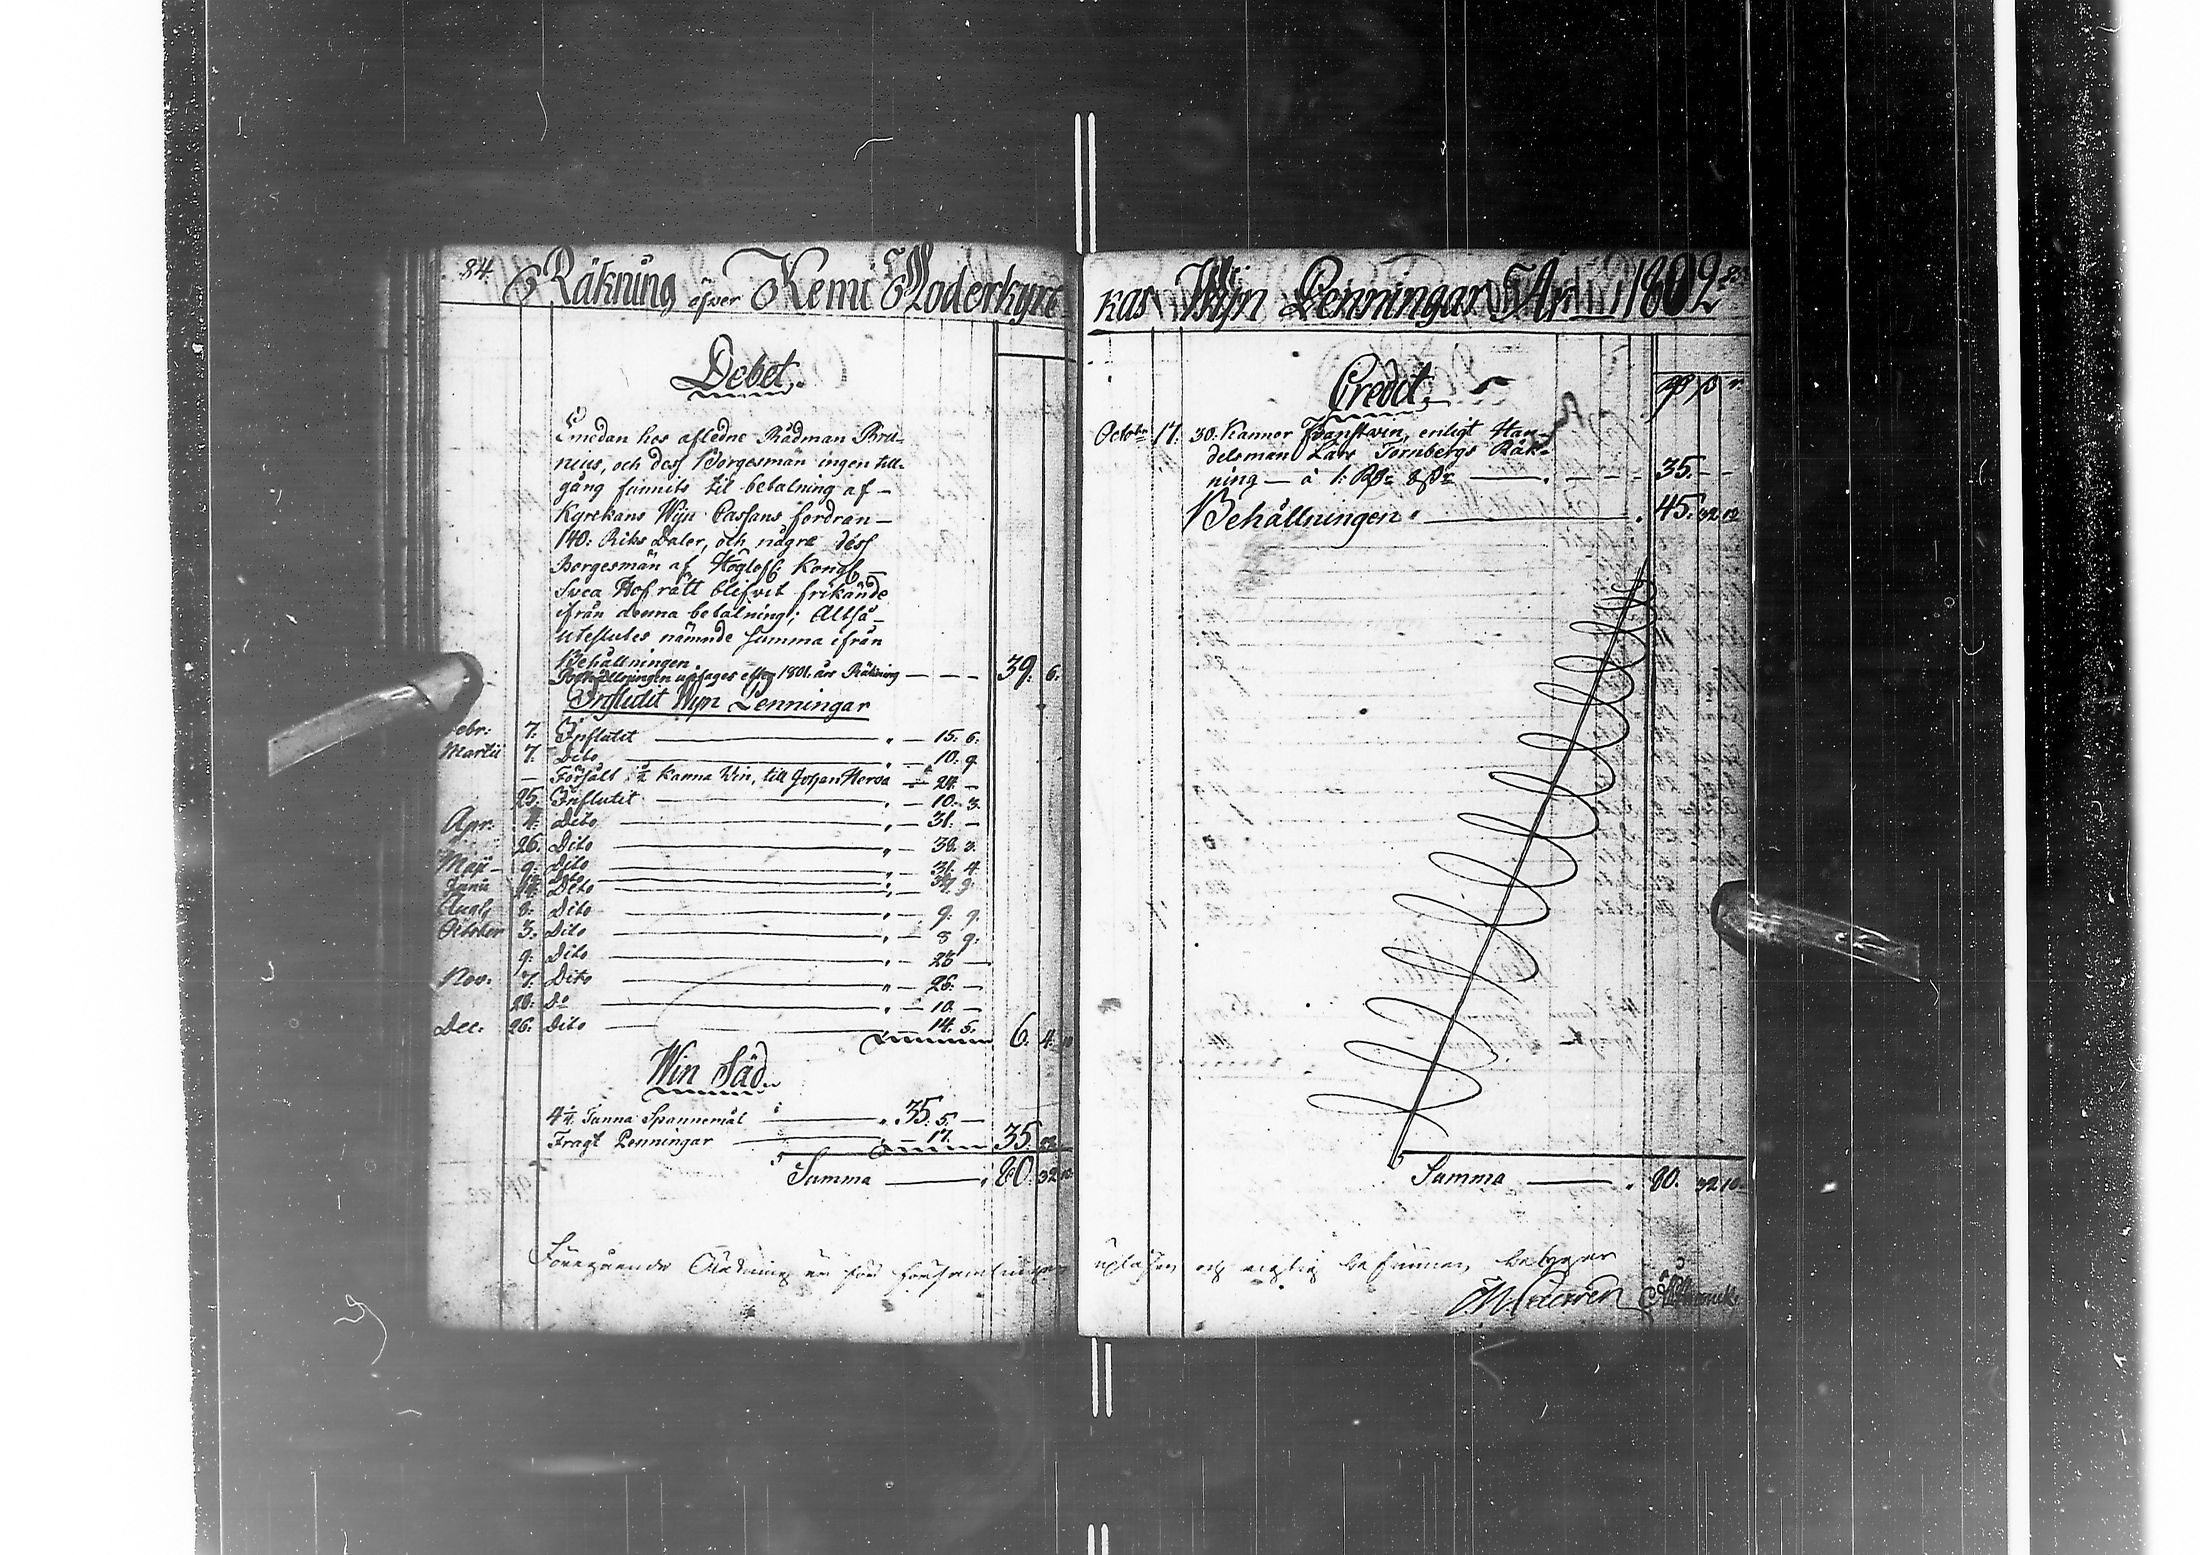 84. Räkning öfver Kemi Moderkyrc
Debet.
Emedan hos afledne Rådman Bru-
nius, och dess Borgesmän ingen till-
gång funnits til betalning af
Kyrckans Wijn Cassans fordran
140: Riks Daler, och några dess
Borgesmän af Höglofl: Kongl
Svea Hofrätt blifvit frikände
ifrån denna betalning; Altså
uteslutes nämnde Summa ifrån
Behållningen.
Behållningen uptages efter 1801. års Räkning — — — 39. 6.
Influtit Wijn Penningar
Febr: 7. Influtit — 15. 6.
Martii 7. Dito — 10. 9.
— Försålt ½ Kanna Vin, till Johan — 24. —
25. Influtit — 10. 3.
Apr: 4. Dito — 31. —
26. Dito — 38. 3.
Maji 9. Dito — 31. 4.
Dito
Junii 24. Dito — 9.
Aug. 8. Dito — 9. 9.
October 3. Dito — 8 9.
9. Dito — 25 —
Nov: 7. Dito — 26. —
28. Do — 10. —
Dec: 26. Dito — 14. 5. 6. 4. 10
Win Säd.
4¼ Tunna Spannemål — 35. 5. —
Fragt Penningar — 17. 35. 22
Summa — 80. 32 10
Föregående Räkning är för församlingen
kas Wijn Penningar För År 1802 85.
Credit
October 17. 30. Kannor Franskt vin, enligt Han-
delsman Lars Tornbergs Räk-
ning — à 1: Rd 8 s — 35. — —
Behållningen — 45. 32 10
Summa — 80. 32 10
upläsen och rigtig befunnen, betyger